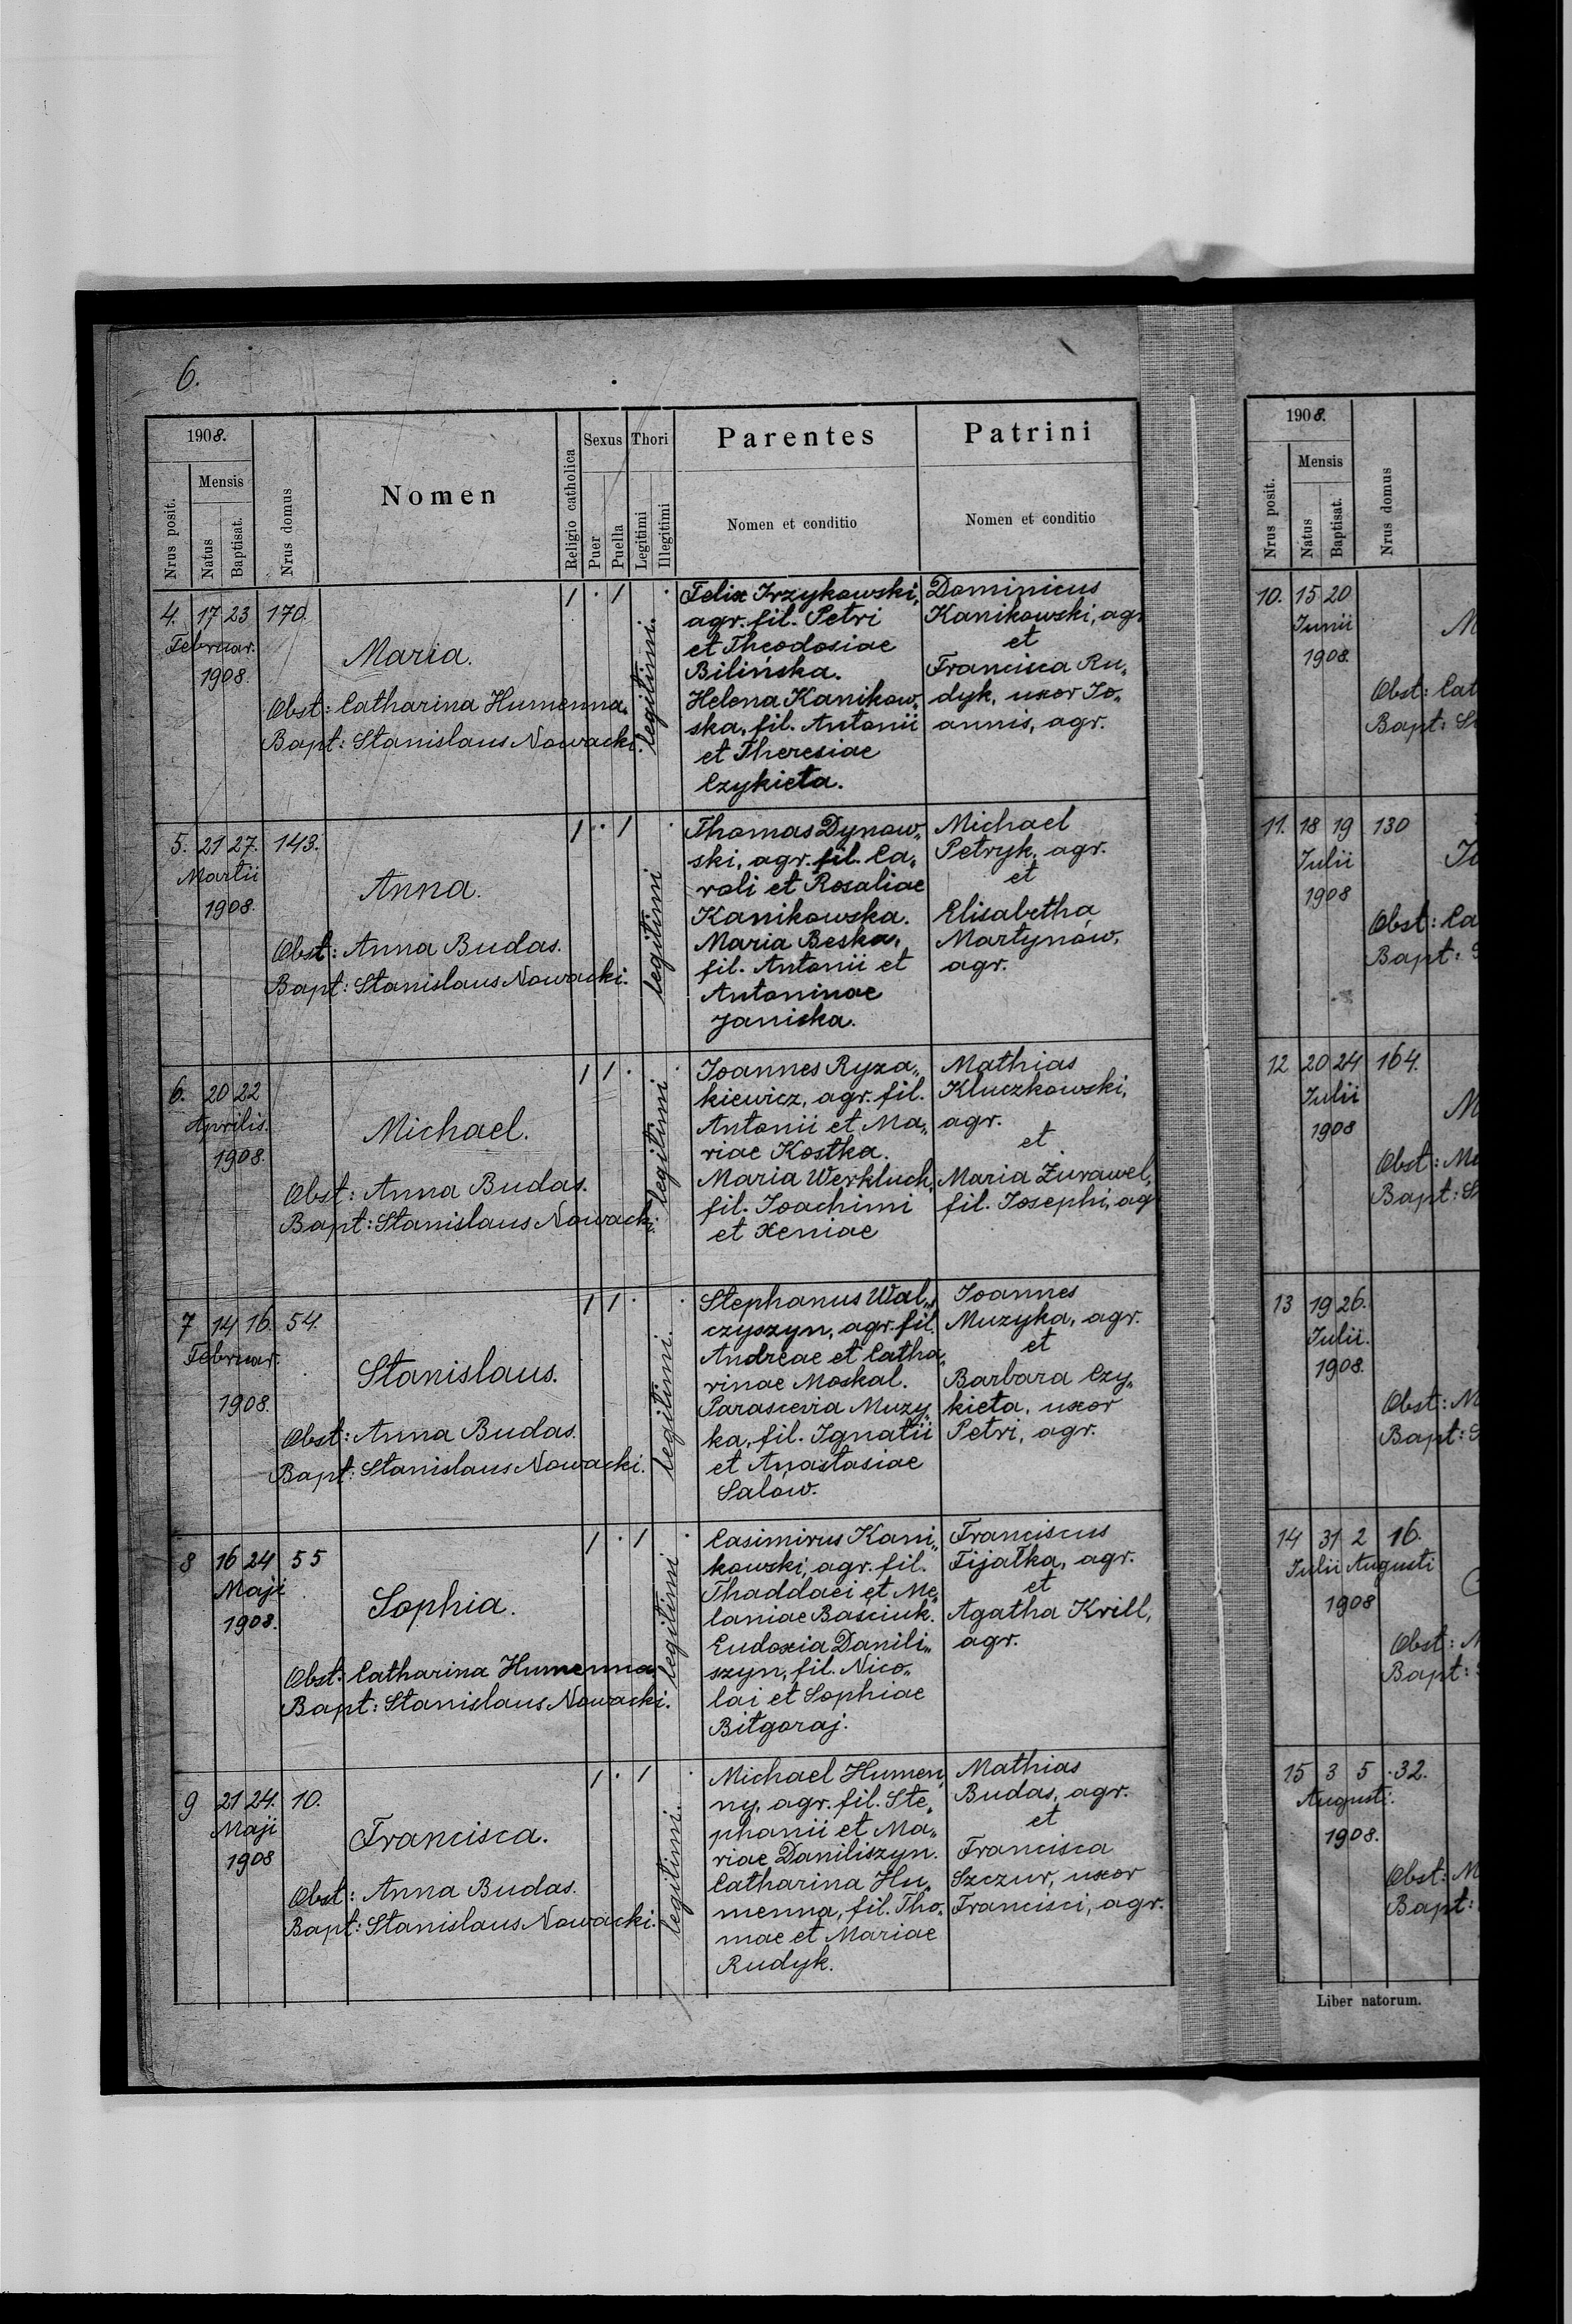 6.
1908.
Nrus posit.
Mensis
Natus
Baptisat.
Nrus domus
Nomen
Religio catholica
Sexus
Puer
Puella
Thori
Legitimi
Illegitimi
Parentes
Nomen et conditio
Patrini
Nomen et conditio
4. 17 23 170.
Februar.
1908.
Maria.
Obst: Catharina Humenna.
Bapt: Stanislaus Nowacki.
1 . 1 .
legitimi.
Felix Irzykowski,
agr. fil. Petri
et Theodosiae
Bilińska.
Helena Kanikow„
ska, fil. Antonii
et Theresiae
Czykieta.
Dominicus
Kanikowski, agr
et
Francisca Ru„
dyk, uxor Io„
annis, agr.
5. 21 27. 143.
Martii
1908.
Anna.
Obst: Anna Budas.
Bapt: Stanislaus Nowacki.
1 . 1 .
legitimi
Thomas Dynow„
ski, agr. fil. Ca„
roli et Rosaliae
Kanikowska.
Maria Beska,
fil. Antonii et
Antoninae
Janiska.
Michael
Petryk, agr.
et
Elisabetha
Martynów,
agr.
6. 20 22
Aprilis.
1908.
Michael.
Obst: Anna Budas.
Bapt: Stanislaus Nowacki.
1 1 . .
legitimi
Ioannes Ryza„
kiewicz, agr. fil.
Antonii et Ma„
riae Kostka.
Maria Werkluch,
fil. Ioachimi
et Xeniae
Mathias
Kluczkowski,
agr.
et
Maria Żurawel,
fil. Iosephi, ag
7 14 16. 54.
Februar.
1908.
Stanislaus.
Obst: Anna Budas.
Bapt: Stanislaus Nowacki.
1 1 . .
legitimi.
Stephanus Wal„
czyszyn, agr. fil.
Andreae et Catha„
rinae Moskal.
Parascevia Muzy„
ka, fil. Ignatii
et Anastasiae
Salów.
Ioannes
Muzyka, agr.
et
Barbara Czy„
kieta, uxor
Petri, agr.
8 16 24 55
Maji
1908.
Sophia.
Obst: Catharina Humenna
Bapt: Stanislaus Nowacki.
1 . 1 .
legitimi
Casimirus Kani„
kowski, agr. fil.
Thaddaei et Me„
laniae Basciuk.
Eudoxia Danili„
szyn, fil. Nico„
lai et Sophiae
Bitgoraj.
Franciscus
Fijałka, agr.
et
Agatha Krill,
agr.
9 21 24. 10.
Maji
1908
Francisca.
Obst: Anna Budas.
Bapt: Stanislaus Nowacki.
1 . 1 .
legitimi.
Michael Humen„
ny, agr. fil. Ste„
phanii et Ma„
riae Daniliszyn.
Catharina Hu„
menna, fil. Tho„
mae et Mariae
Rudyk.
Mathias
Budas, agr.
et
Francisca
Szczur, uxor
Francisci, agr.
1908.
Nrus posit.
Mensis
Natus
Baptisat.
Nrus domus
10. 15 20
Iunii
1908.
M
Obst: Cat
Bapt: St
11. 18 19 130
Iulii
1908
Io
Obst: Ca
Bapt: S
12 20 24 164.
Iulii
1908
M
Obst: Ma
Bapt: St
13 19 26.
Iulii.
1908.
Obst: M
Bapt: S
14 31 2 16.
Iulii Augusti
1908
Obst:
Bapt:
15 3 5 32.
Augusti.
1908.
Obst: M
Bapt:
Liber natorum.